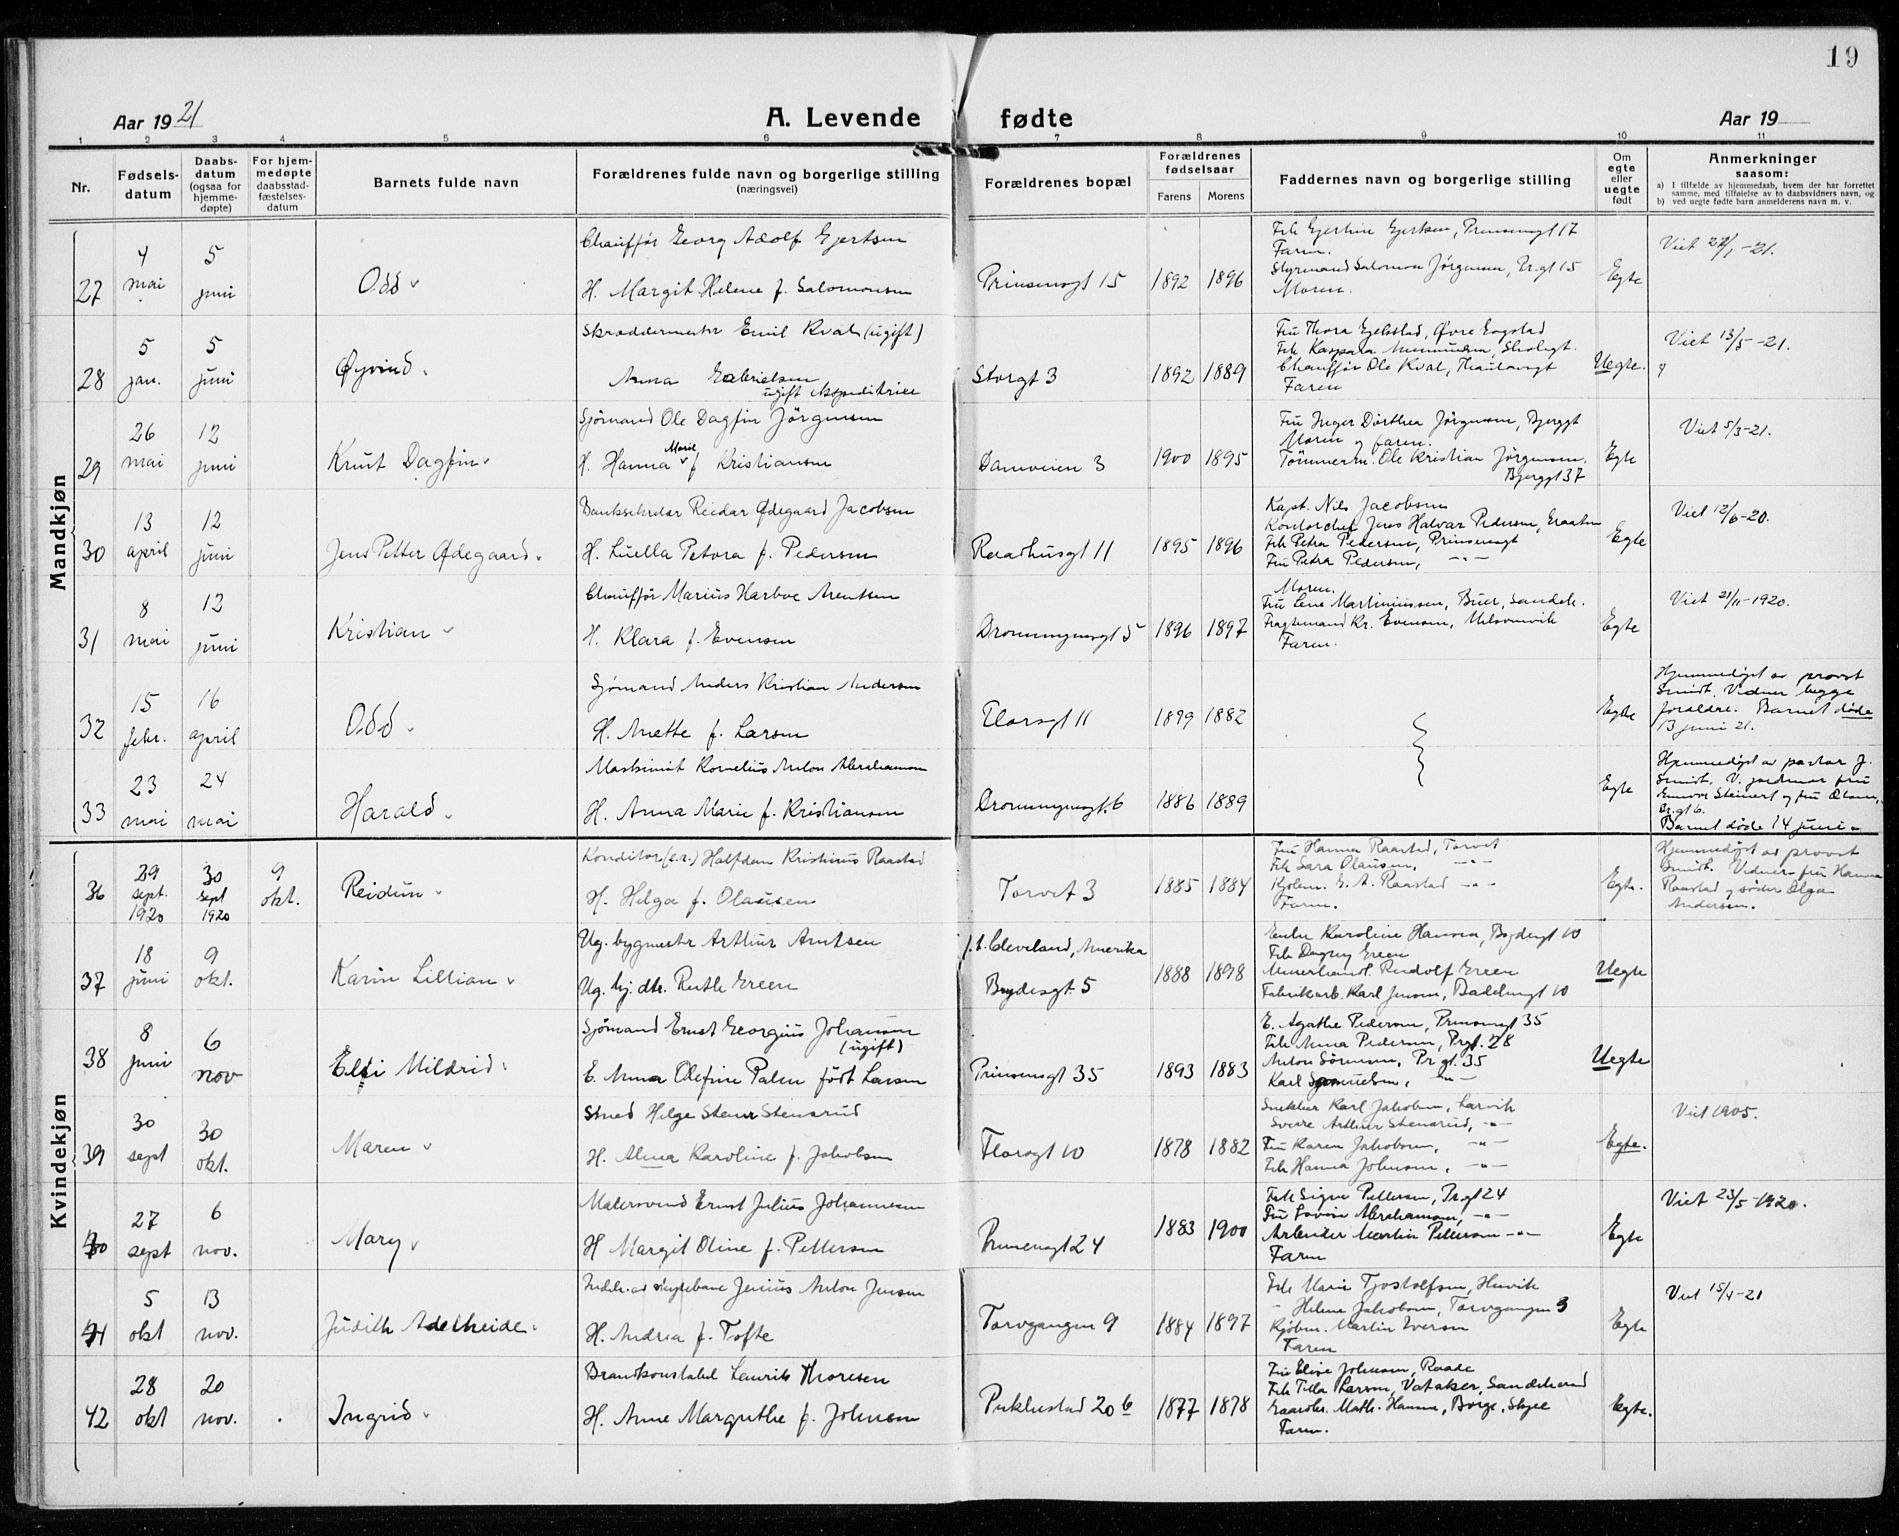 19
Aar 1921 A. Levende fødte Aar 19
1 2 3 4 5 6 7 8 9 10 11
Nr.
Fødsels-datum
Daabs-datum (ogsaa for hjemme-døpte)
For hjem-medøpte daabsstad-fæstelses-datum
Barnets fulde navn
Forældrenes fulde navn og borgerlige stilling (næringsvei)
Forældrenes bopæl
Forældrenes fødselsaar
Farens Morens
Faddernes navn og borgerlige stilling
Om egte eller uegte født
Anmerkninger saasom:
a) I tilfælde av hjemmedaab, hvem der har forrettet samme, med tilføielse av to daabsvidners navn, og
b) ved uegte fødte barn anmelderens navn m. v.
Mandkjøn
27 4 mai 5 juni Odd
Chauffør Georg Adolf Gjertsen
H. Margit Helene f. Salomonsen
Prinsensgt 15 1892 1896
Frk Gjertine Gjertsen, Prinsensgt 17
Faren.
Styrmand Salomon Jørgensen, Pr.gt 15
Moren.
Egte
Viet 22/1-21.
28 5 jan. 5 juni Øyvind
Skræddermester Emil Kval (ugift)
Anna Gabrielsen
ugift ekspeditrice
Storgt 3 1892 1889
Fru Thora Gjelstad, Øvre Gogstad
Chauffør Ole Kval,
Faren
Uegte.
Viet 13/5-21.
29 26 mai 12 juni Knut Dagfin
Sjømand Ole Dagfin Jørgensen
H. Hanna Marie f Kristiansen
Damveien 3 1900 1895
Fru Inger Dorthea Jørgensen, Bjerggt
Moren og faren.
Tømmerm. Ole Kristian Jørgensen,
Bjerggt 37
Egte
Viet 5/3-21.
30 13 april 12 juni Jens Petter Ødegaard
Banksekretær Reidar Ødegaard Jacobsen
H. Luella Petora f. Pedersen
Raadhusgt 11 1895 1896
Kapt. Nils Jacobsen
Kontorchef Jens Halvar Pedersen,
Frk Petra Pedersen, Prinsensgt
Fru Petra Pedersen, -"-
Egte
Viet 12/6-20.
31 8 mai 12 juni Kristian
Chauffør Marius Harboe Arentsen
H. Klara f. Evensen
Dronningensgt 5 1896 1897
Moren.
Fru Lene Martiniussen, Buer, Sandeh.
Fragtemand Kr. Evensen, Melsomvik
Faren.
Egte
Viet 21/11-1920.
32 15 febr. 16 april Odd
Sjømand Anders Kristian Andersen
H. Anette f. Larsen
Florsgt 11 1899 1882
Egte
Hjemmedøpt av provst
Smidt. Vidner begge
foræld​re. Barnet døde
13 juni 21.
33 23 mai 24 mai Harald
Maskinist Kornelius Anton Abrahamsen
H. Anna Marie f. Kristiansen
Dronningensgt. 6 1886 1889
Egte
Hjemmedøpt av pastor J.
Smidt. V. jordmor fru
Steinert og fru Olsen,
Dr.gt 6.
Barnet døde 14 juni
Kvindekjøn
36 29 sept. 1920 30 sept 1920 9 okt. Reidun
Konditor (e.r.) Halfdan Kristinus Raastad
H. Helga f. Olausen
Torvet 3 1885 1884
Fru Hanna Raastad, Torvet
Frk Sara Olausen, -"-
Kjøbm. E. A. Raastad -"-
Faren.
Egte.
Hjemmedøpt av provst
Smidt. Vidner fru Hanna
Raastad og søster Olga
Andersen.
37 18 juni 9 okt. Karin Lillian
Ug. bygmester Arthur Arntsen
Ug. hj. dtr. Ruth Green
f. t. Cleveland, Amerika
Brydesgt. 5 1888 1898
Enke Karoline Hansen, Brydesgt 10
Frk Dagny Green
Rudolf Green
Fabrikarb. Karl Jensen, 10
Uegte
38 8 juni 6 nov Elfi Mildrid
Sjømand Ernst Georgius Johansen
(ugift)
E. Anna Olefine Palm født Larsen
Prinsensgt 35 1893 1883
E. Agathe Pedersen, Prinsensgt 35
Frk Anna Pedersen, Prgt. 28
Anton Sørensen, Pr.gt. 35
Karl Samuelsen, -"-
Uegte
39 30 sept 30 okt. Maren
Smed Helge Stener Stensrud
H. Alma Karoline f. Jakobsen
Florsgt 10 1878 1882
Snekker Karl Jakobsen, Larvik
Sverre Arthur Stensrud, -"-
Fru Karen Jakobsen, -"-
Frk Hanna Johnsen, -"-
Egte.
Viet 1905.
40 27 sept 6 nov. Mary
Malersvend Ernst Julius Johannesen
H Margit Oline f. Pettersen
Prinsensgt 24 1883 1900
Frk Signe Pettersen, Pr.gt 24
Fru Lovise Abrahamsen, -"-
Arbeider Martin Pettersen -"-
Faren
Egte
Viet 23/5-1920.
41 5 okt 13 nov. Judith Adelheide
Indeh. av skytebane Jenius Anton Jensen
H. Andrea f. Tofte
Torvgangen 9 1884 1897
Frk Marie Tjostolfsen,
- Helene Jakobsen, Torvgangen 3
Kjøbm. Martin Iversen
Faren
Egte
Viet 15/4-21
42 28 okt 20 nov. Ingrid
Brandkonstabel Laurits Thoresen
H. Anne Margrethe f. Johnsen
Peklustad 20 b 1877 1878
Fru Elise Johnsen, Raade
Frk Tilla Larsen, Vataker, Sandeherred
Gaardbr. Math. Hansen, Borge, Skjee
Faren.
Egte.